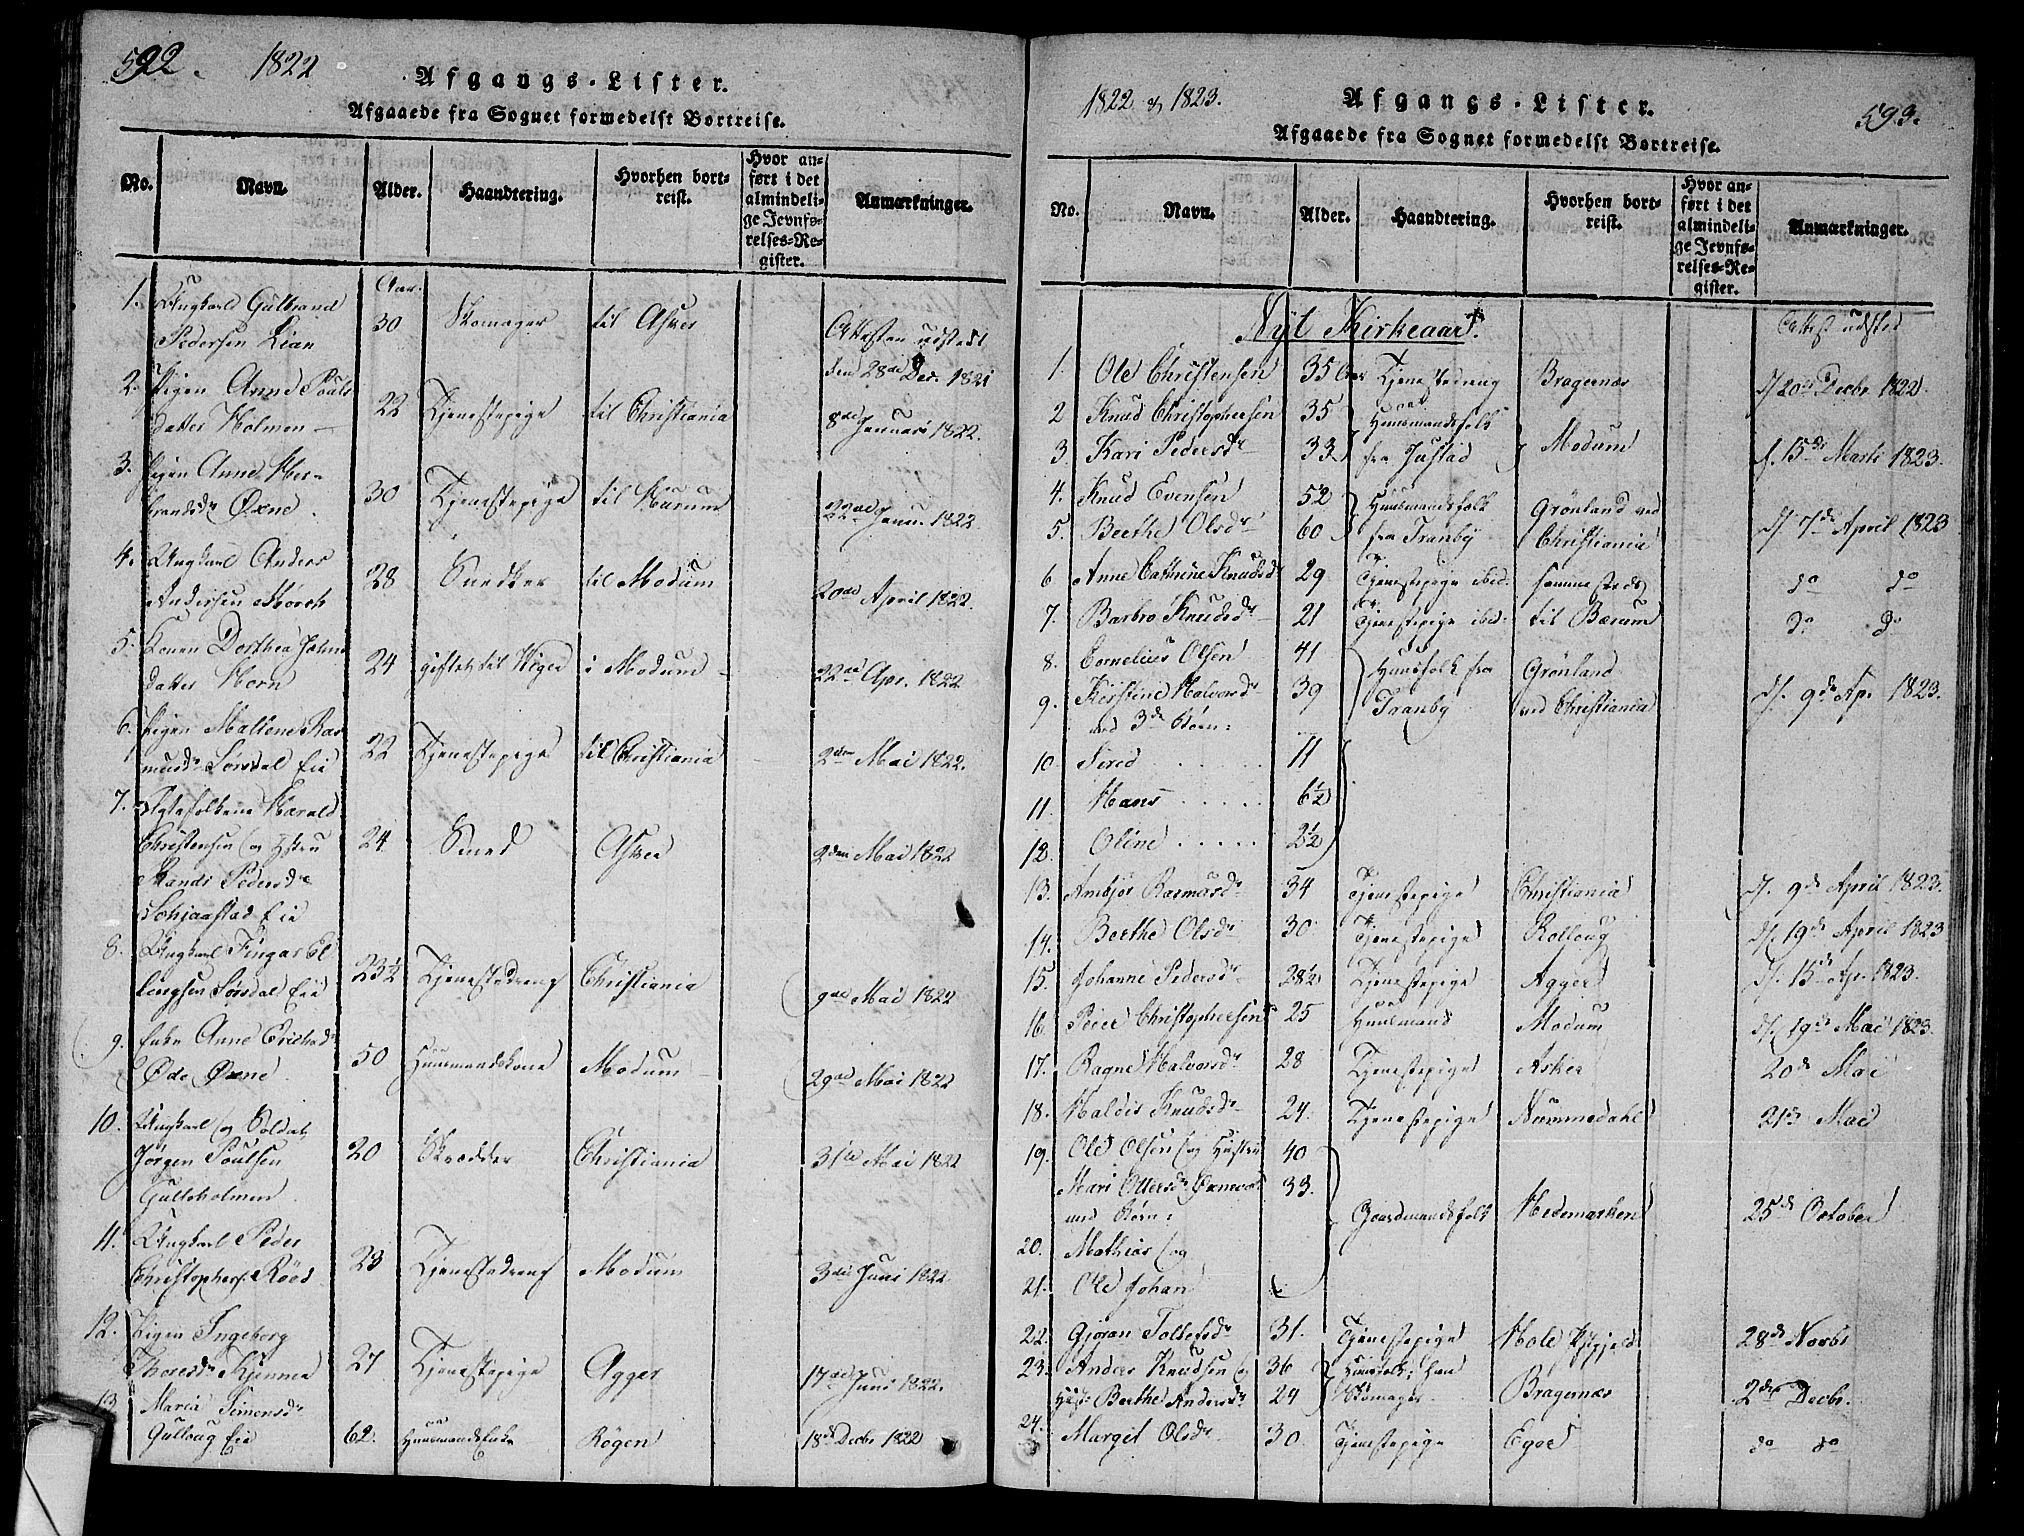 592. 1822
Afgangs-Lister.
Afgaaede fra Sognet formedelst Bortreise.
No. Navn. Alder. Haandtering. Hvorhen bortreist. Hvor anført i det almindelige Jevnførelses-Register. Anmærkninger.
1. Ungkarl Gulbrand Aar.
Pedersen Lian 30 Skomager til Asker Attesten udstedt
den 28de Dec. 1821
2. Pigen Anne Pouls
datter Holmen 22 Tjenestepige til Christiania 8de Januari 1822.
3. Pigen Anne Her-
brandsdr Øxne. 30 Tjenestepige til Hurum 22de Janu. 1822.
4. Ungkarl Anders
Andersen Horch 28 Snedker til Modum 20de April 1822.
5. Konen Dorthea
datter Horn 24 giftet til Wiger i Modum 22de Apr. 1822
6. Pigen Maltene Ras
musdr Sørsdal Eie 22 Tjenestepige til Christiania 2den Mai 1822.
7. Ægtefolkene Harald
Christensen og Hstru 24 Smed Asker 2den Mai 1822
Randi Pedersdr
Schjaastad Eie
8. Ungkarl Fingar El
lingsen Sørsdal Eie 23½ Tjenestedreng Christiania 9de Mai 1822
9. Enke Anne Erichsdr
Øde Øxne. 50 Huusmandskone Modum 29de Mai 1822
10. Ungkarl og Soldat
Jørgen Poulsen 20 Skrædder Christiania 31te Mai 1822
Gulsholmen.
11. Ungkarl Peder
Christophers. Røod 23 Tjenestedreng Modum 3die Juni 1822
12. Pigen Ingeborg
Thoresdr Kjennen 27 Tjenestepige Agger 17de Juni 1822.
13 Maria Simensdr
Gulloug Eie 62. Huusmandsenke Røgen 18de Decbr 1822
1822 & 1823.
Afgangs-Lister.
593.
Afgaaede fra Sognet formedelst Bortreise.
No. Navn. Alder. Haandtering. Hvorhen bortreist. Hvor anført i det almindelige Jevnførelses-Register. Anmærkninger.
Nyt Kirkeaar. Attest udsted
1. Ole Christensen 35 Aar Tjenestedreng Bragernæs d. 20de Decbr 1822.
2 Knud Christophersen 35 Huusmandsfolk
3. Kari Pedersdr 33 fra Justad Modum d. 15de Marts 1823.
4. Knud Evensen 52 Huusmandsfolk Grønland ved
5. Berthe Olsdr 60 fra Tranby Christiania d. 7de April 1823
6 Anne Cathrine Knudsdr 29 Tjenestepige ibid: sammesteds do do
7. Barbro Knudsdr 21 Tjenestepige ibid: til Bærum do do
8. Cornelius Olsen 41 Huusfolk fra Grønland
9. Kirstine Halvorsdr 39 Tranby ved Christiania d. 9de Ap. 1823.
med 3de Børn:
10. Sired 11
11. Hans 6½
12. Oline 2½
13. Ambjør Rasmusdr 34 Tjenestepige Christiania d. 9de April 1823.
14. Berthe Olsdr 30. Tjenestepige Rolloug d. 19de April 1823
15. Johanne Pedersdr 28½ Tjenestepige Agger d. 15de Ap. 1823.
16. Peder Christophersen 25 Huusmand Modum d. 19de Mai 1823.
17. Ragne Halvorsdr 28 Tjenestepige Asker 20de Mai
18. Haldis Knudsdr 24. Tjenestepige Nummedahl 21de Mai
19. Ole Olsen og Hustru 40
Mari Ottersdr 33. Gaardmandsfolk Hedemarken 25de October
med Børn:
20. Mathias og
21. Ole Johan
22. Gjøran Tollefsdr 31. Tjenestepige Hole Præstegjeld 28de Novbr
23. Anders Knudsen og 36 Huusfolk: han
Hust: Berthe Andersdr 24 Skomager Bragernæs 2den Decbr.
24. Margit Olsdr 30 Tjenestepige Eger do do